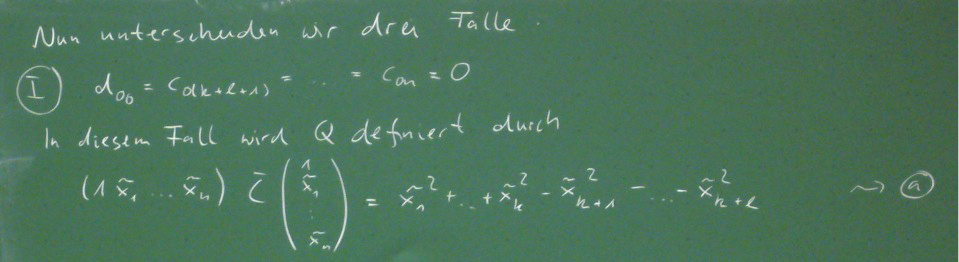 Nun unterscheiden wir drei Fälle.
(I) d₀₀ = c₀₍ₖ₊ₗ₊₁₎ = ... = c₀ₙ = 0
In diesem Fall wird Q definiert durch
(1 x̃₁ ... x̃ₙ) C̃ (1 x̃₁ ⋮ x̃ₙ) = x̃₁² + ... + x̃ₖ² - x̃ₖ₊₁² - ... - x̃ₖ₊ₗ² ⇝ (a)